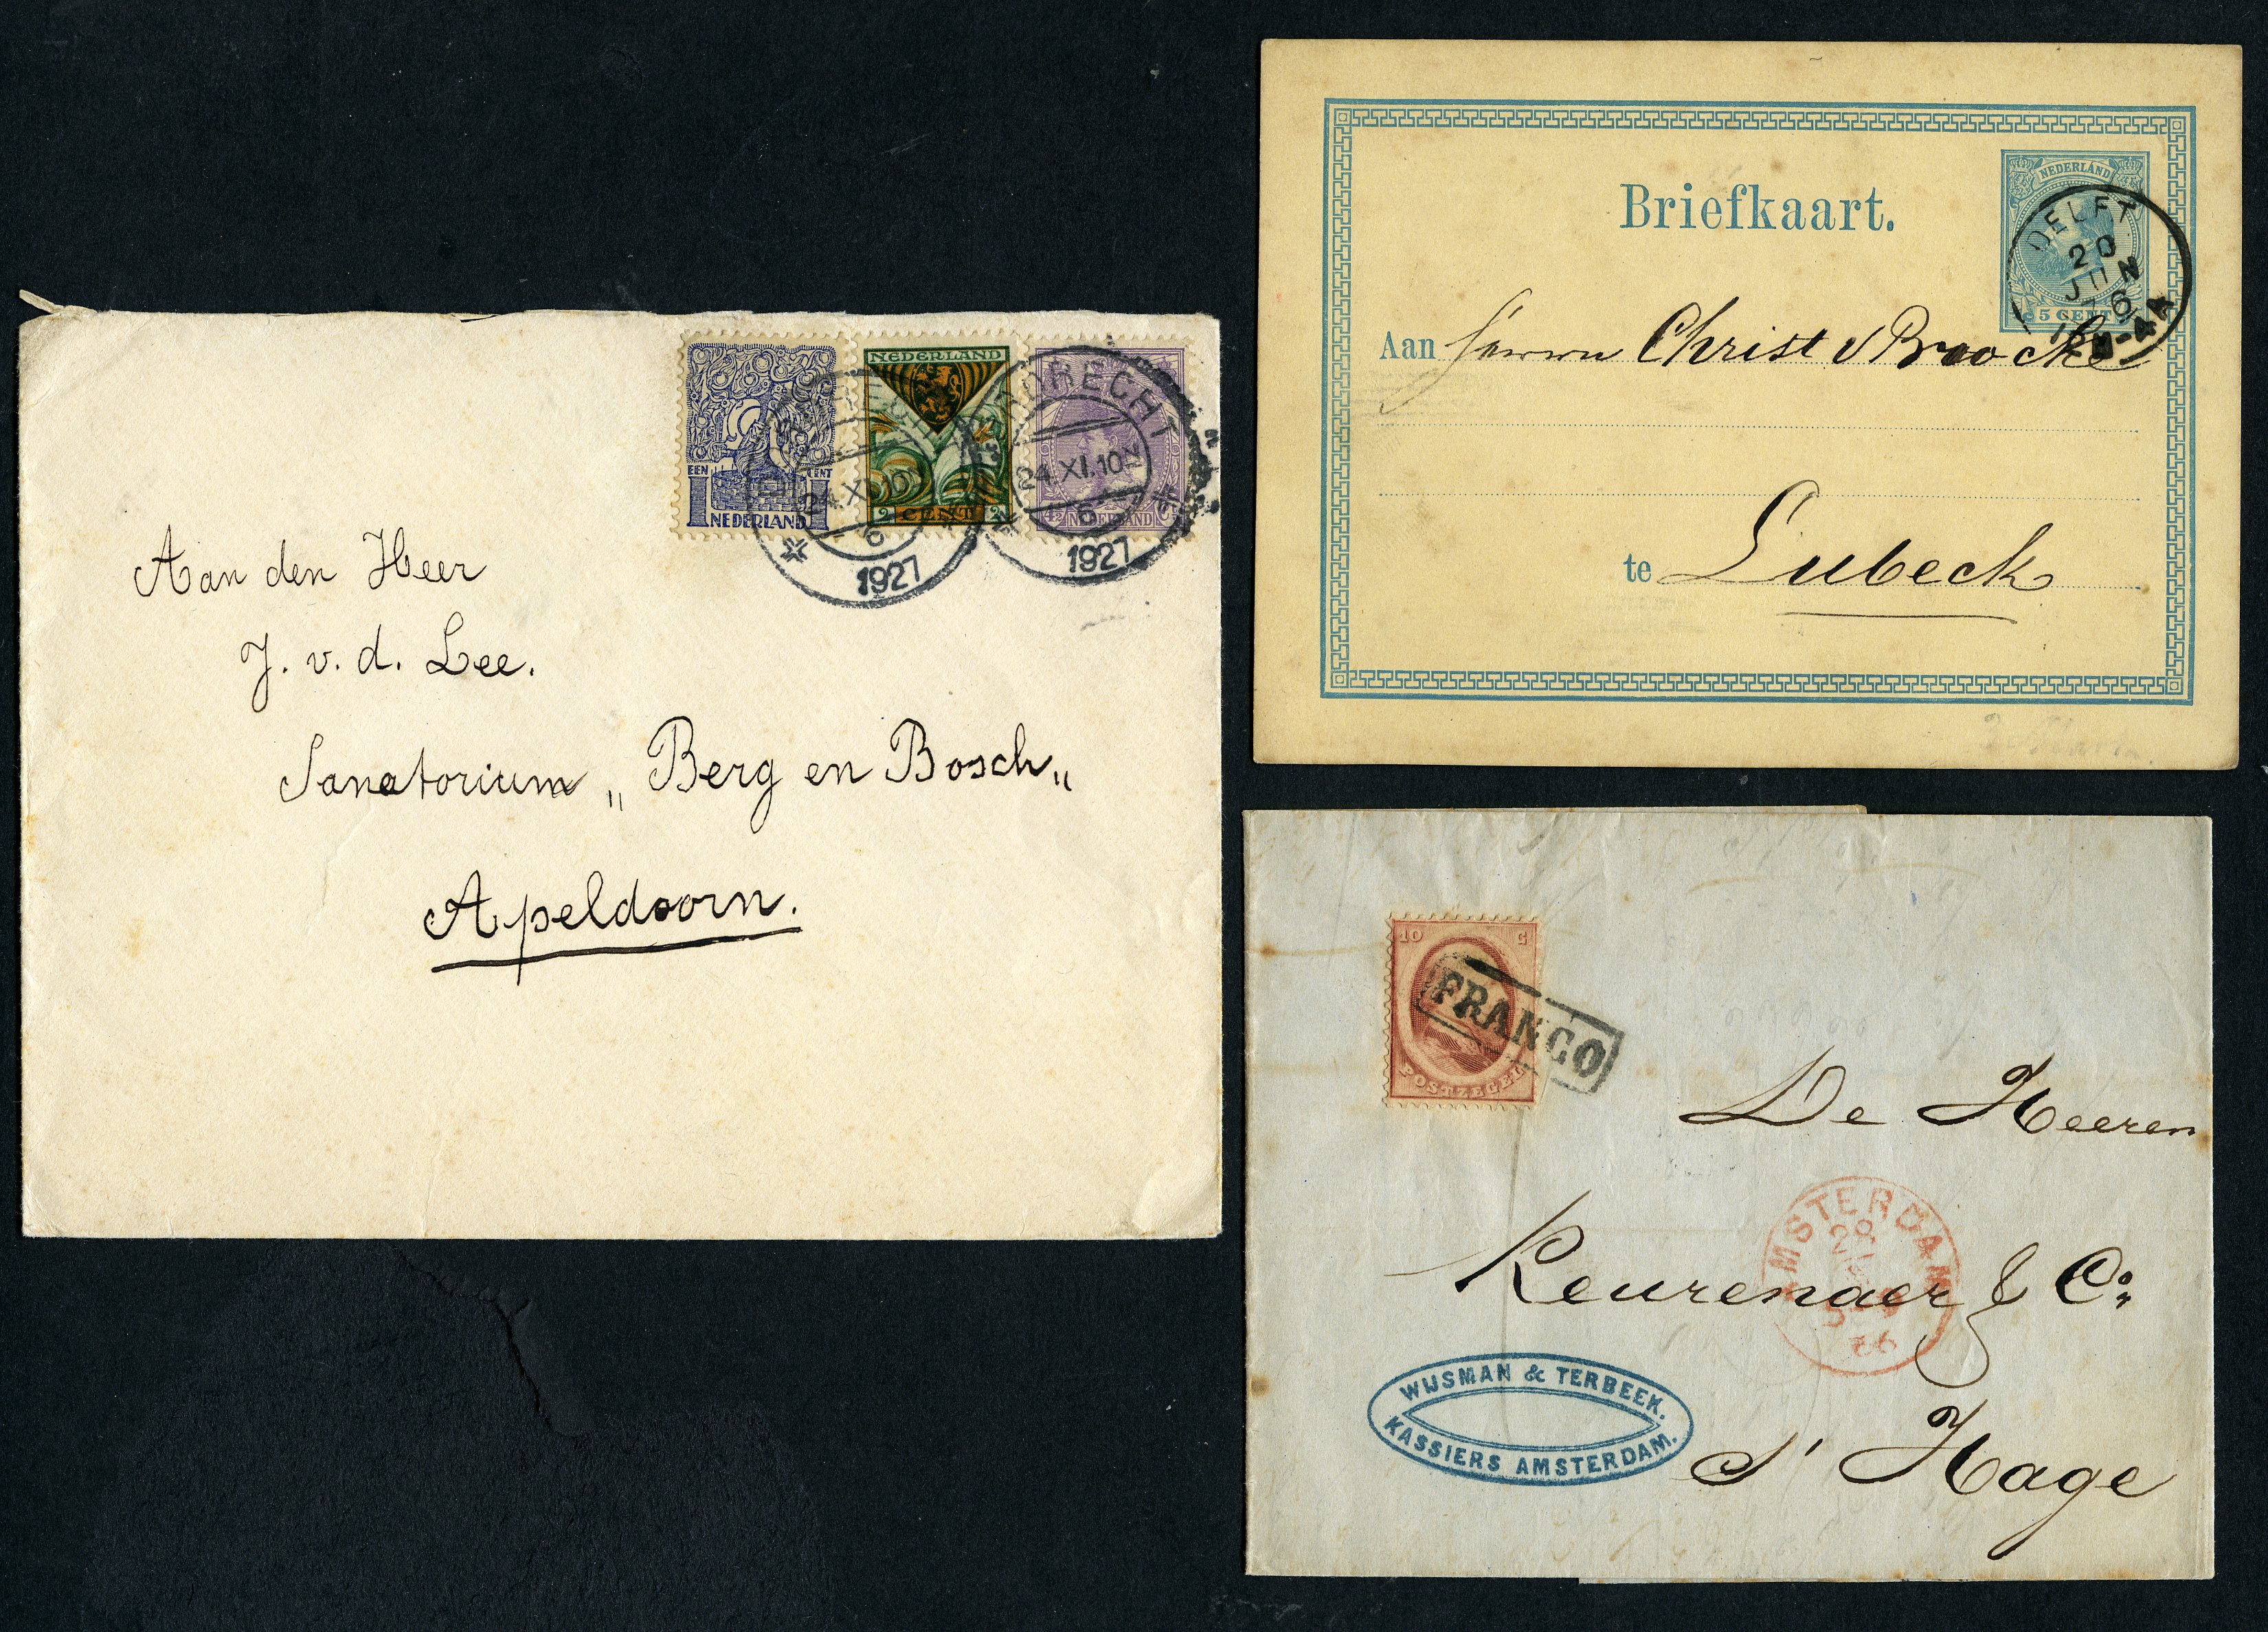 EEN CENT
1 1
NEDERLAND
NEDERLAND
2 CENT 2
NEDERLAND
DORDRECHT
24.XI.10
24.XI.10
6
6
1927
1927
Aan den Heer
J. v. d. Lee.
Sanatorium „Berg en Bosch„
Apeldoorn.
Briefkaart.
NEDERLAND
5 CENT
DELFT
20
JUN
76
Aan Herrn Christ v Broocke
te Lubeck
10 C
POSTZEGEL
FRANCO
De Heeren
Keurenaer & Co
s' Hage
AMSTERDAM
28
66
WIJSMAN & TERBEEK.
KASSIERS AMSTERDAM.